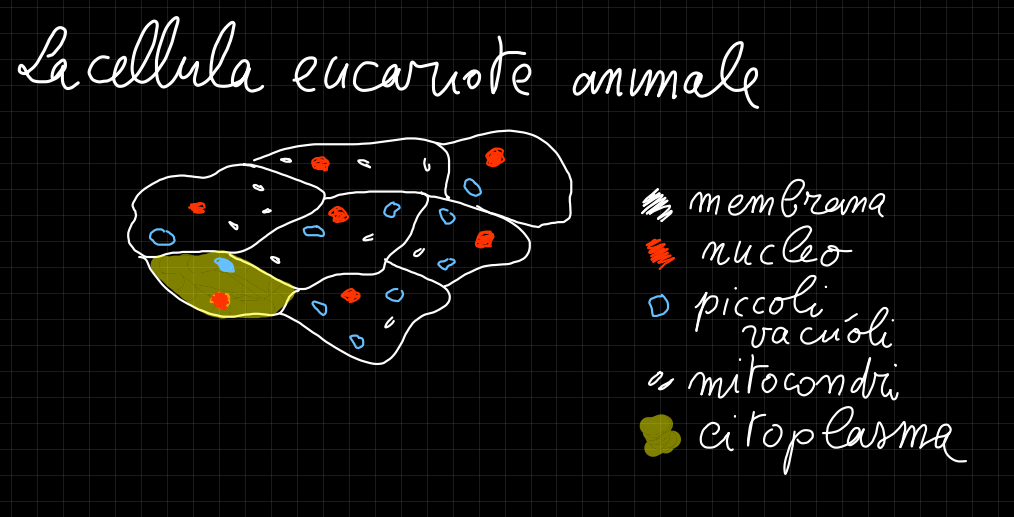 La cellula eucariote animale
membrana
nucleo
piccoli
vacúoli
mitocondri
citoplasma